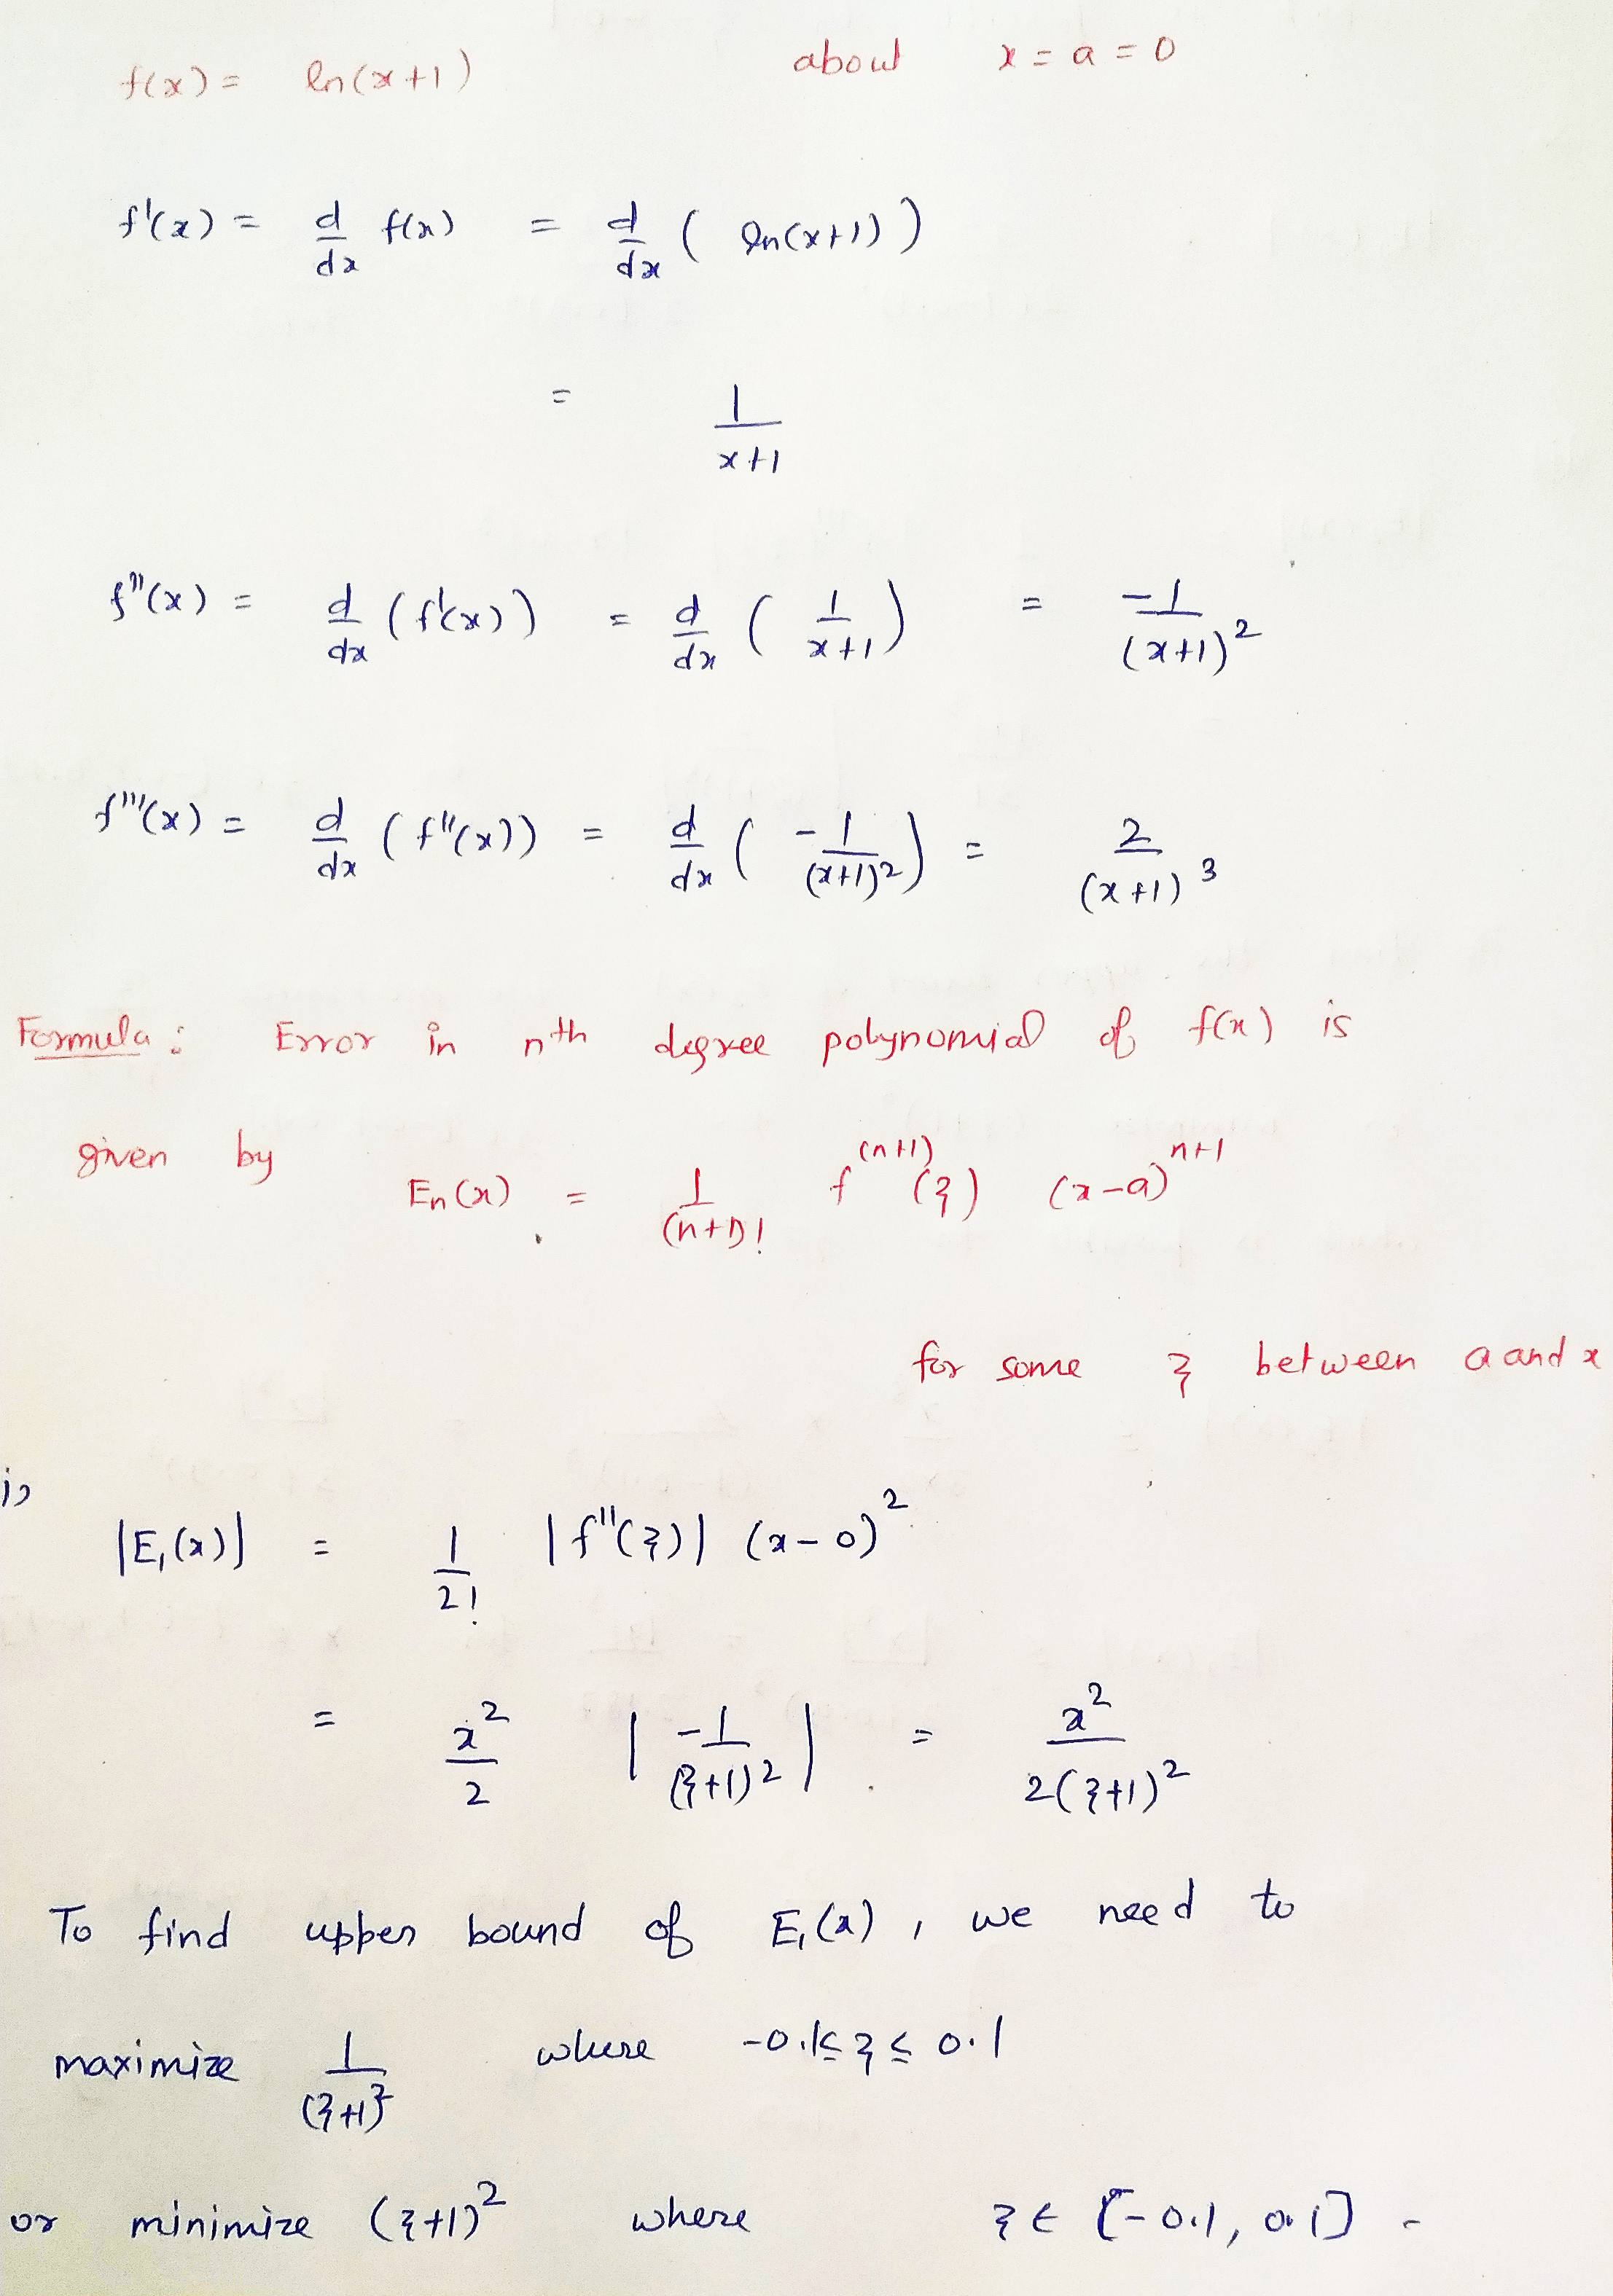 f(x) = ln(x+1) about x = a = 0
f'(x) = d/dx f(x) = d/dx ( ln(x+1) )
= 1/(x+1)
f''(x) = d/dx (f'(x)) = d/dx ( 1/(x+1) ) = -1/(x+1)²
f'''(x) = d/dx ( f''(x)) = d/dx ( -1/(x+1)² ) = 2/(x+1)³
Formula : Error in nth degree polynomial of f(x) is
given by En(x) = 1/(n+1)! f^(n+1)(ξ) (x-a)^(n+1)
for some ξ between a and x
i>
|E₁(x)| = 1/2! |f''(ξ)| (x-0)²
= x²/2 | -1/(ξ+1)² | = x²/2(ξ+1)²
To find upper bound of E₁(x) , we need to
maximize 1/(ξ+1)² where -0.1≤ ξ ≤ 0.1
or minimize (ξ+1)² where ξ ∈ [-0.1, 0.1] -